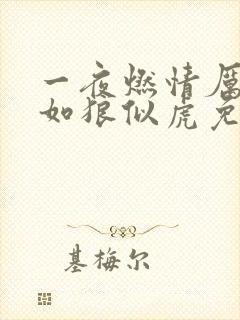 一夜燃情厉
如狼似虎免
基梅尔